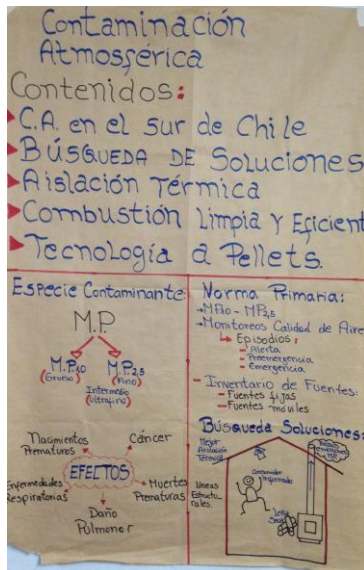 Contaminación
Atmosférica
Contenidos:
C.A. en el Sur de Chile
BÚSQUEDA DE Soluciones
Aislación Térmica
Combustión Limpia y Eficient
Tecnología a Pellets.
Especie Contaminante:
M.P.
M.P.10
(Grueso)
M.P.2,5
(Fino)
Intermedio
(Ultrafino)
Nacimientos
Prematuros
Cáncer
EFECTOS
Enfermedades
Respiratorias
Muertes
Prematuras
Daño
Pulmonar
Norma Primaria:
MP10 - MP2,5
Monitoreos Calidad de Aire
Episodios:
- Alerta
- Preemergencia
- Emergencia
- Inventario de Fuentes:
- Fuentes fijas
- Fuentes móviles
Búsqueda Soluciones:
Mejor
Aislación
Térmica
Consumidor
Informado
Mejoras
Estructu-
rales.
Leña
Seca